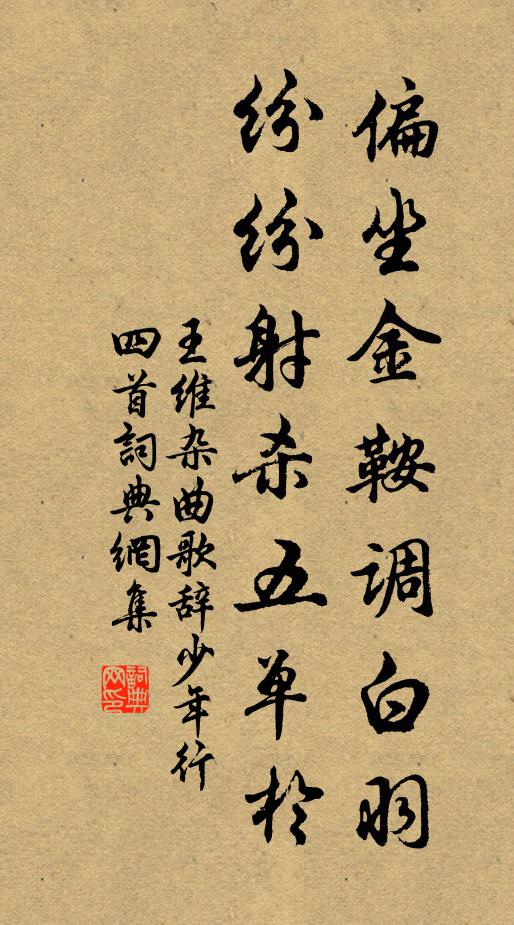 偏坐金鞍调白羽
纷纷射杀五单於
王维杂曲歌辞少年行
四首詞典網集
詞典
网印